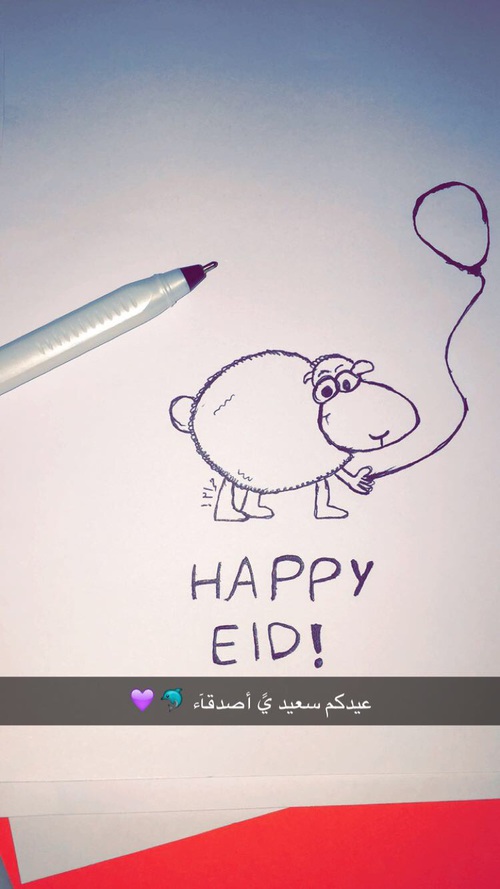 HAPPY
EID!
عيدكم سعيد يَِّ أصدقاَء 🐬 💜